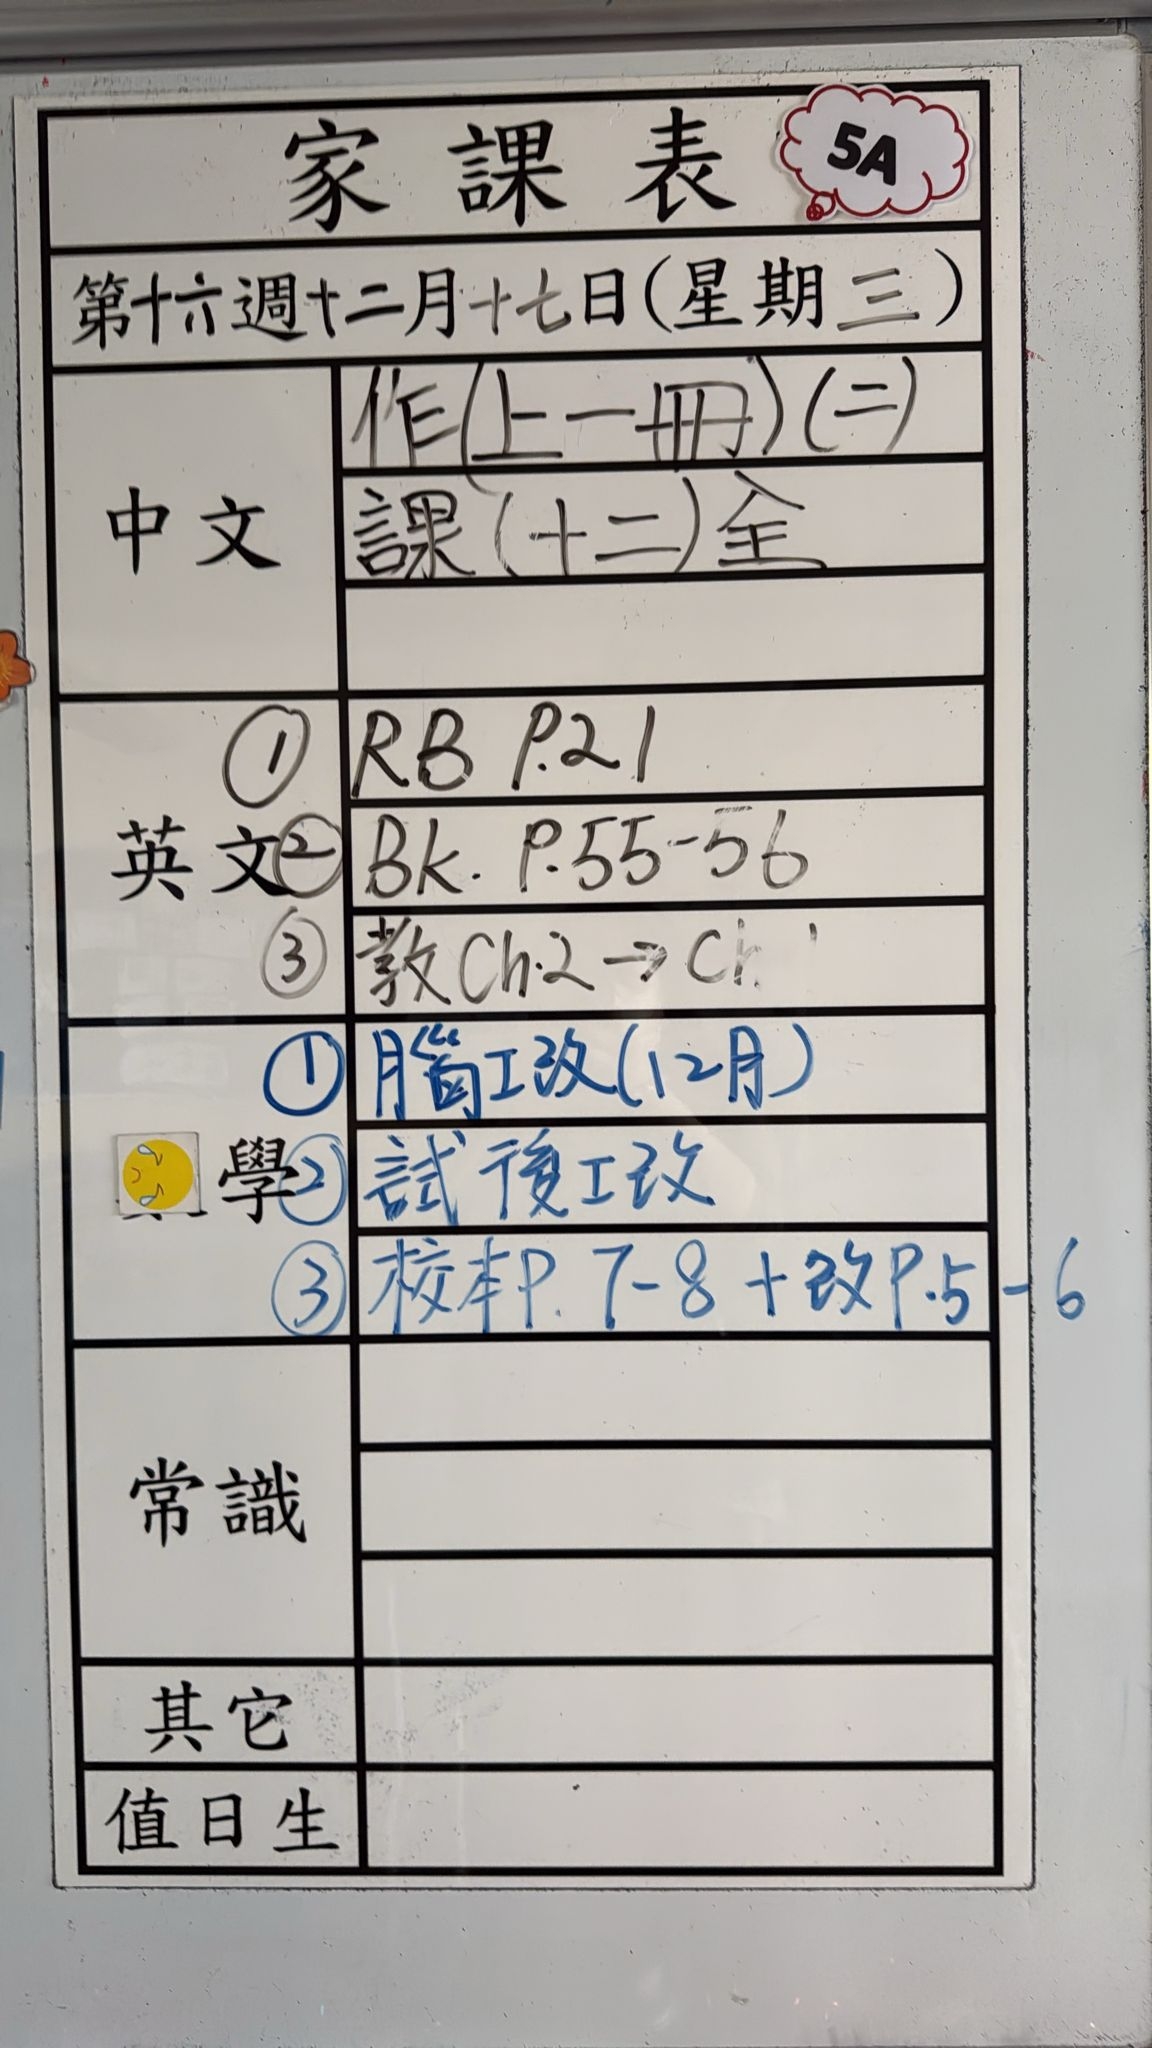 家課表
5A
第十六週十二月十七日(星期三)
中文
作(上一冊)(二)
課(十二)全
英文
① RB P.21
② Bk. P.55-56
③ 教 Ch.2 → Ch
學
① 腦工改(12月)
② 試後工改
③ 校本P. 7-8 + 改P.5-6
常識
其它
值日生